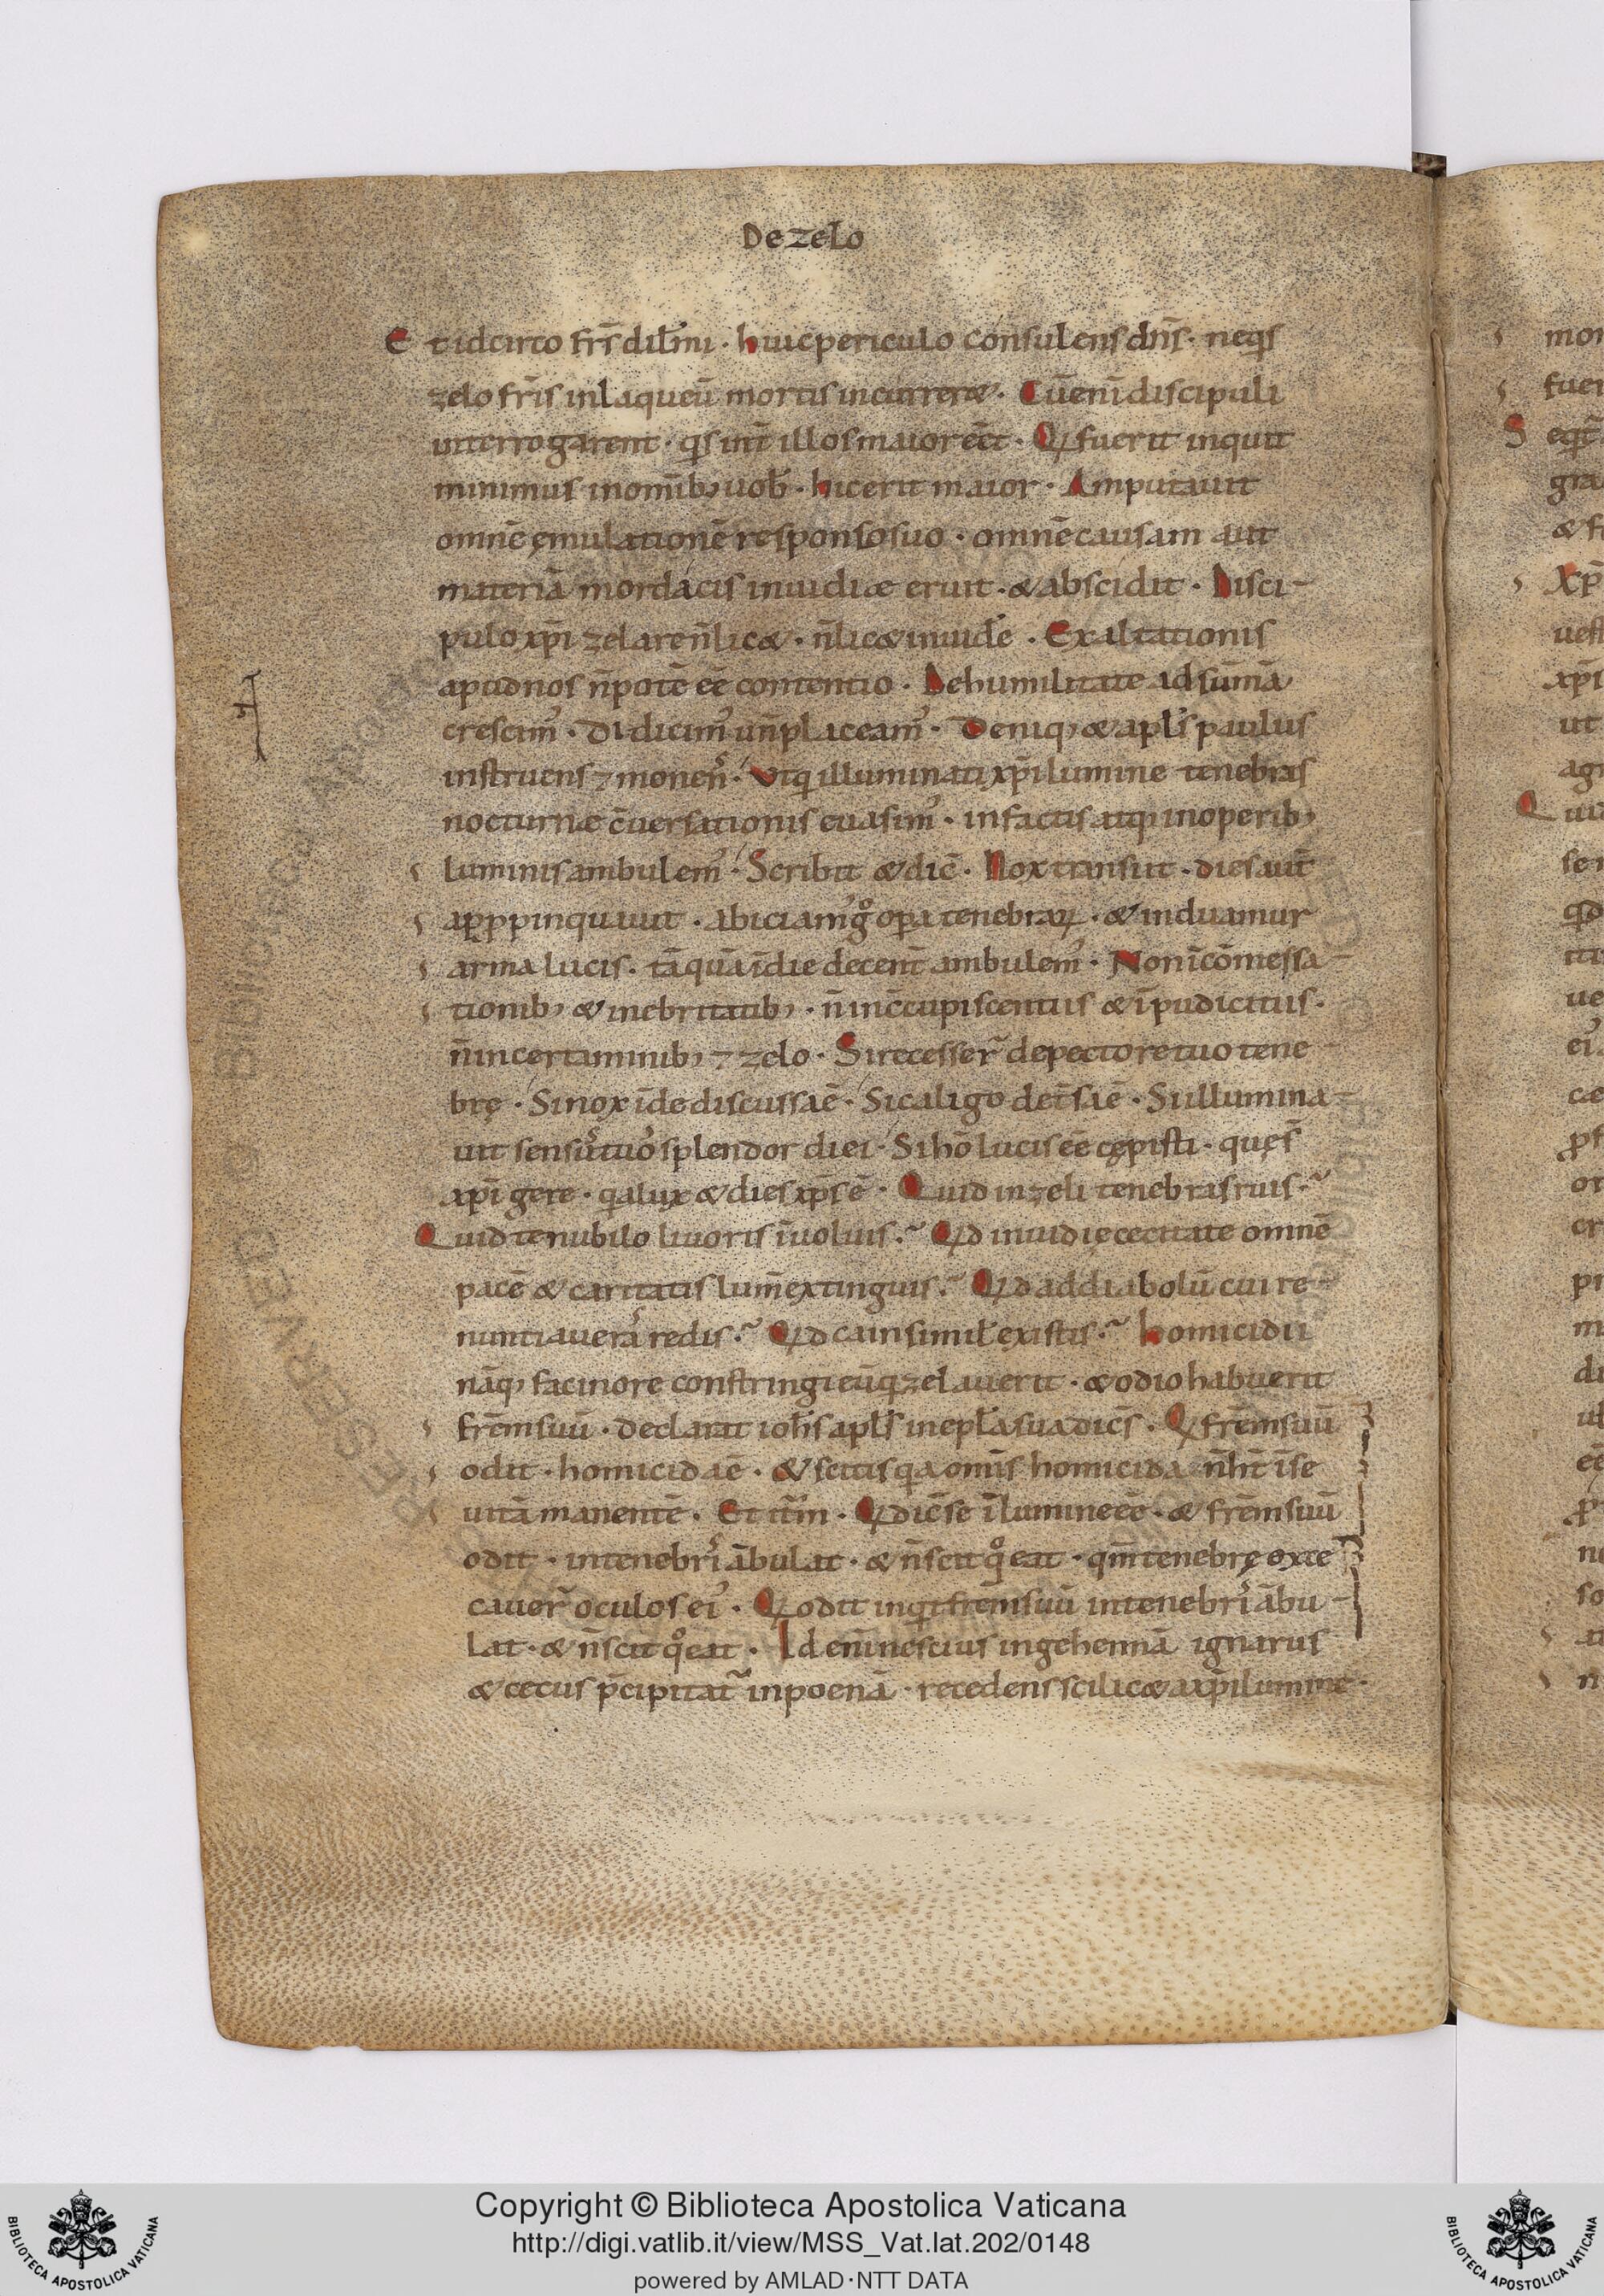 De zelo
Et idcirco fr̄s dil̄mi · huic periculo consulens dn̄s · neq̄s
zelo fr̄is in laqueū mortis incurreret · Cū eni̅ discipuli
interrogarent · q̄s int̄ illos maior eēt · Q fuerit inquit
minimus in omīb; uob̄ · hic erit maior · Amputauit
omnē ęmulationē responso suo · omnē causam aut
materiā mordacis inuidiæ eruit · & abscidit · Disci-
pulo xp̄i zelare n̄ licet · n̄ licet inuidē · Exaltationis
apud nos n̄ potē eē contentio · De humilitate ad sūmā
crescim᾽ · Didicim᾽ un̄ placeam᾽ · Deniq; & apl̄s paulus
instruens ⁊ monen̄ · Vt q̄ illuminati xp̄i lumine tenebras
nocturnæ c̄uersationis euasim᾽ · in factis atq; in operib;
luminis ambulem᾽ · Scribit & dic̄ · Nox transiit · dies aut̄
appropinquauit · abiciam᾽ gͦ opa tenebraꝝ · & induamur
arma lucis · tā quā ī die decent̄ ambulem᾽ · Non ī cōmessa-
tionib; & in ebrietatib; · n̄ in c̄cupiscentiis & īpudicitiis ·
n̄ in certaminib; ⁊ zelo · Si recesser̄ de pectore tuo tene-
brę · Si nox īde discussa ē · Si caligo det̄sa ē · Si illumina-
uit sensus tuos splendor diei · Si hō lucis eē cępisti · quę s̄
xp̄i gere · q̄a lux & dies xp̄s ē · Quid in zeli tenebras ruis ·
Quid te nubilo liuoris īuoluis · Qd inuidię cecitate omnē
pacē & caritatis lum̄ extinguis · Qd ad diabolū cui re-
nuntiaueras redis · Qd cain simil̄ existis · homicidii
nāq; facinore constringi eū q̄ zelauerit · & odio habuerit
frēm suū · declarat ioh̄s apl̄s in epl̄a sua dicēs · Q frēm suū
odit · homicida ē · & scitis q̄a omīs homicida n̄ ht̄ ī se
uitā manentē · Et itm̄ · Q dic̄ se ī lumine eē · & frēm suū
odit · in tenebris ābulat · & n̄ scit qͦ eat · qm̄ tenebrę exce
cauer̄ oculos ei᾽ · Q odit inq̄t frēm suū in tenebris ābu-
lat · & n̄ scit qͦ eat · Id eni̅ nescius in gehennā ignarus
& cecus p̄cipitat̄ in poenā · recedens scilicet a xp̄i lumine ·
mor
fuer
S eq̄t
gra
& f
Xp̄
uest
xp̄i
ut
agr
Q ui
ser
Copyright © Biblioteca Apostolica Vaticana
http://digi.vatlib.it/view/MSS_Vat.lat.202/0148
powered by AMLAD·NTT DATA
BIBLIOTECA APOSTOLICA VATICANA
BIBLIOTECA APOSTOLICA VATICANA